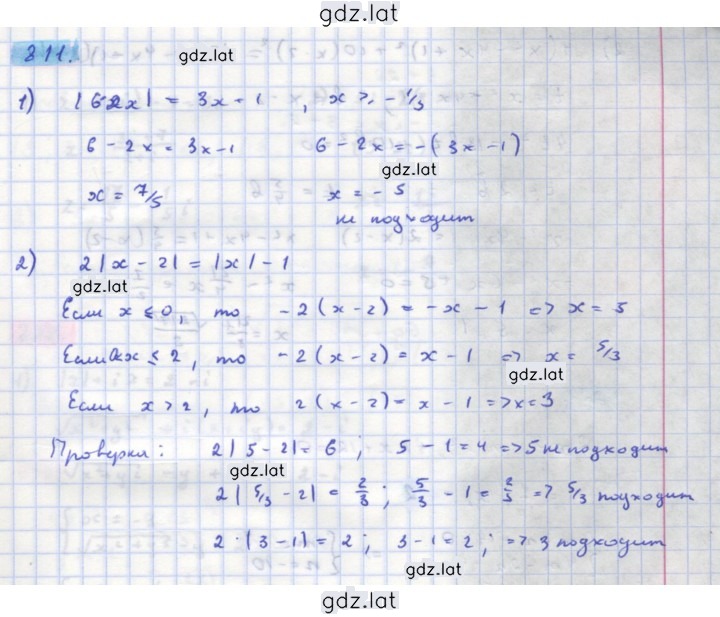 gdz.lat
811. gdz.lat
1) |6-2x| = 3x+1 , x ≥ -1/3
6 - 2x = 3x-1 6 - 2x = -(3x-1)
gdz.lat
x = 7/5 x = -5
не подходит
2) 2|x-2| = |x|-1
gdz.lat
Если x ≤ 0, то -2(x-2) = -x-1 => x = 5
Если 0<x ≤ 2, то -2(x-2) = x-1 => x = 5/3
gdz.lat
Если x > 2, то 2(x-2) = x-1 => x=3
Проверка: 2|5-2| = 6 ; 5-1=4 => 5 не подходит
gdz.lat
2|5/3-2| = 2/3 ; 5/3 - 1 = 2/3 => 5/3 подходит
2·(3-1) = 2 ; 3-1=2 ; => 3 подходит
gdz.lat
gdz.lat